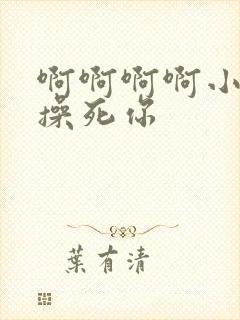 啊啊啊啊小
操死你
葉有清